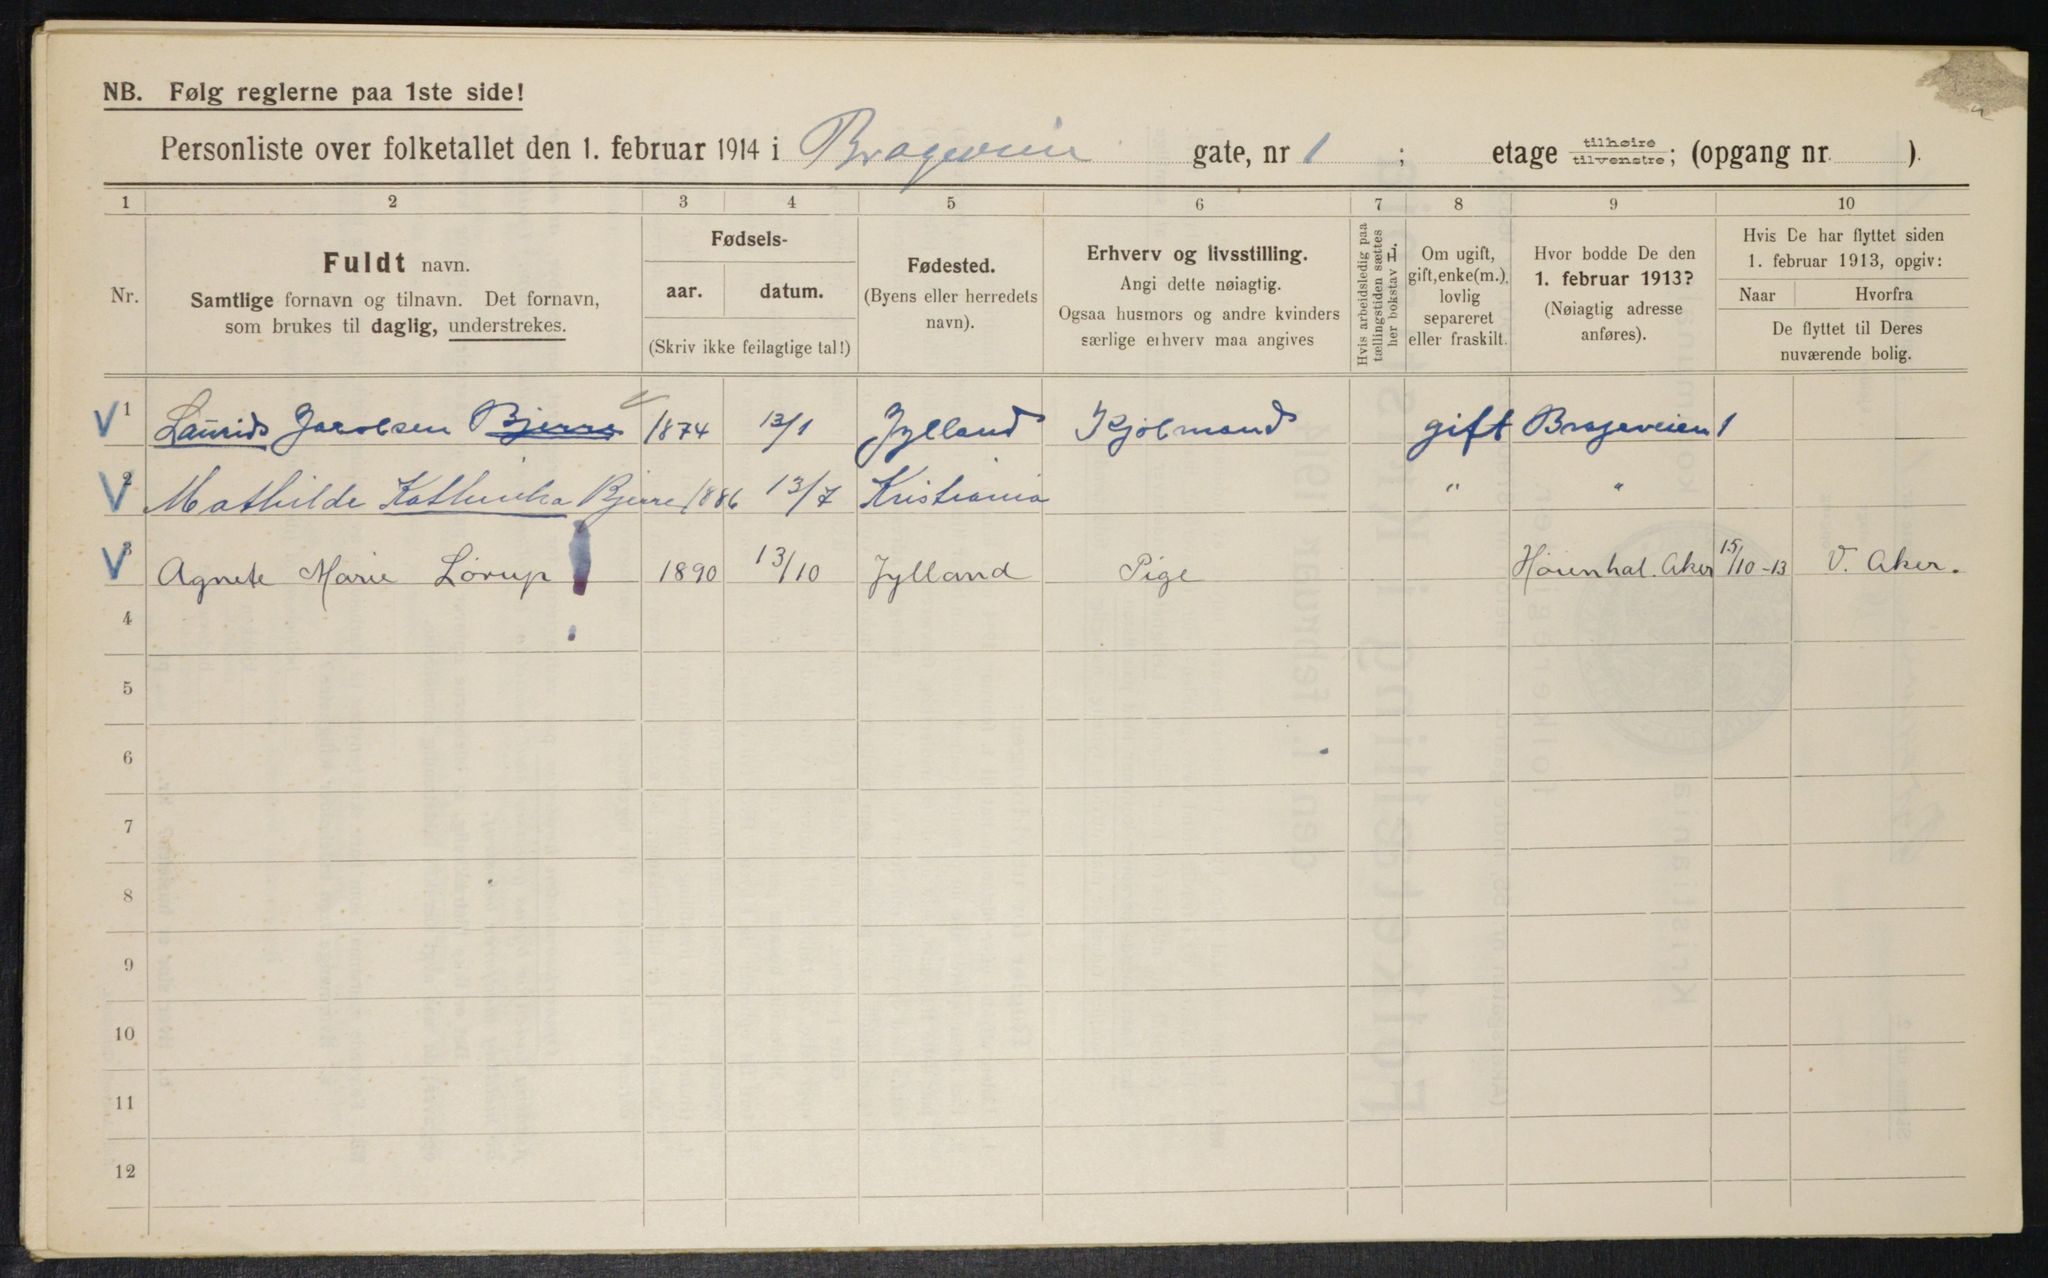 NB. Følg reglerne paa 1ste side!
Personliste over folketallet den 1. februar 1914 i Brageveien gate, nr 1 ; etage tilhøire tilvenstre; (opgang nr ).
1 2 3 4 5 6 7 8 9 10
Nr.
Fuldt navn.
Samtlige fornavn og tilnavn. Det fornavn,
som brukes til daglig, understrekes.
Fødsels-
aar. datum.
(Skriv ikke feilagtige tal!)
Fødested.
(Byens eller herredets
navn).
Erhverv og livsstilling.
Angi dette nøiagtig.
Ogsaa husmors og andre kvinders
særlige erhverv maa angives
Hvis arbeidsledig paa
tællingstiden sættes
her bokstav L.
Om ugift,
gift, enke(m.),
lovlig
separeret
eller fraskilt.
Hvor bodde De den
1. februar 1913?
(Nøiagtig adresse
anføres).
Hvis De har flyttet siden
1. februar 1913, opgiv:
Naar Hvorfra
De flyttet til Deres
nuværende bolig.
V 1 Laurids Jacobsen Bjerre 1874 13/1 Jylland Kjøbmand gift Brageveien 1
V 2 Mathilde Kathinka Bjerre 1886 13/7 Kristiania " "
V 3 Agnete Marie Lørup 1890 13/10 Jylland Pige Aker 15/10-13 V. Aker.
4
5
6
7
8
9
10
11
12